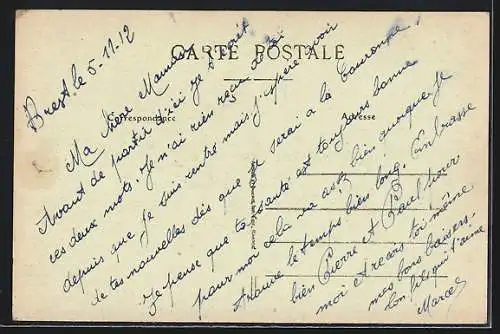 CARTE POSTALE
Correspondance
Adresse
Brest le 5-11-12
Ma chère Maman
Avant de partir d'ici je t'écrit
ces deux mots. Je n'ai rien reçu de toi
depuis que je suis rentré mais j'espère avoir
de tes nouvelles dès que je serai à la Couronne,
Je pense que ta santé est toujours bonne
pour moi cela va assez bien quoique je
trouve le temps bien long. Embrasse
bien Pierre et Paul pour
moi et reçois toi même
mes bons baisers.
Ton fils qui t'aime
Marcel